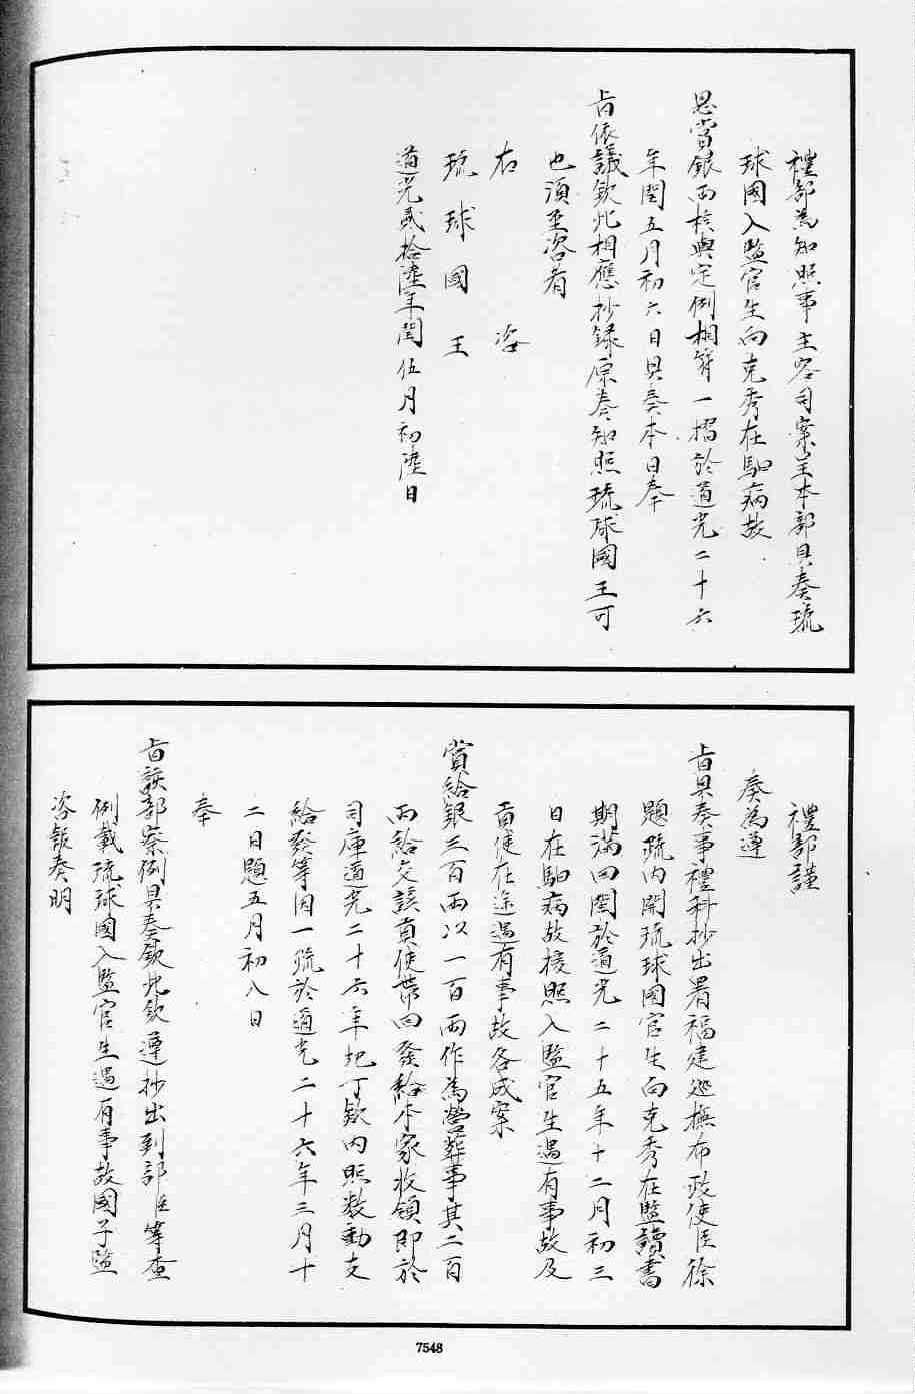 禮部為知照事主客司案呈本部具奏琉
球國入監官生向克秀在駟病故
恩賞銀兩核與定例相符一摺於道光二十六
年閏五月初六日具奏本日奉
旨依議欽此相應抄錄原奏知照琉球國王可
也須至咨者
右咨
琉球國王
道光貳拾陸年閏伍月初陸日
禮部謹
奏為遵
旨具奏事禮科抄出署福建巡撫布政使臣徐
題疏內開琉球國官生向克秀在監讀書
期滿回閩於道光二十五年十二月初三
日在駟病故援照入監官生遇有事故及
貢使在途遇有事故各成案
賞給銀三百兩以一百兩作為營葬事其二百
兩給交該貢使帶回發給本家收領即於
司庫道光二十六年地丁欵內照數動支
給發等因一疏於道光二十六年三月十
二日題五月初八日
奉
旨該部察例具奏欽此欽遵抄出到部臣等查
例載琉球國入監官生遇有事故國子監
咨報奏明
7548